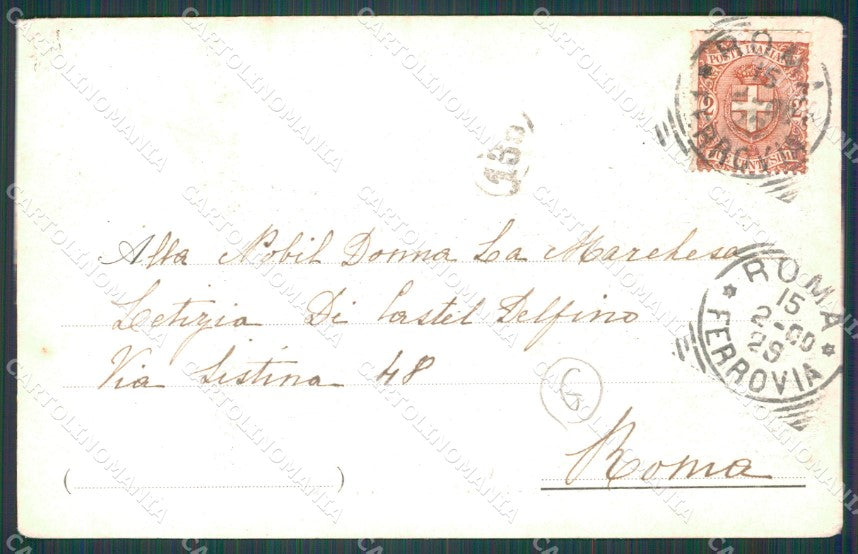 POSTE ITALIANE
2 2
DUE CENTESIMI
ROMA
15
FERROVIA
130
Alla Nobil Donna La Marchesa
Letizia Di Castel Delfino
Via Sistina 48
Roma
ROMA
15
2-00
29
FERROVIA
CARTOLINOMANIA